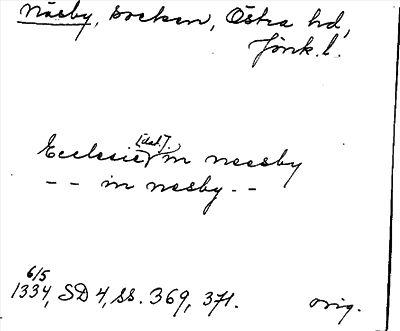 Näsby, socken, Östra hd,
Jönk. l.
Ecclesie [dat.] in neesby
- - in nesby. - -
6/5
1334, SD 4, ss. 369, 371. orig.